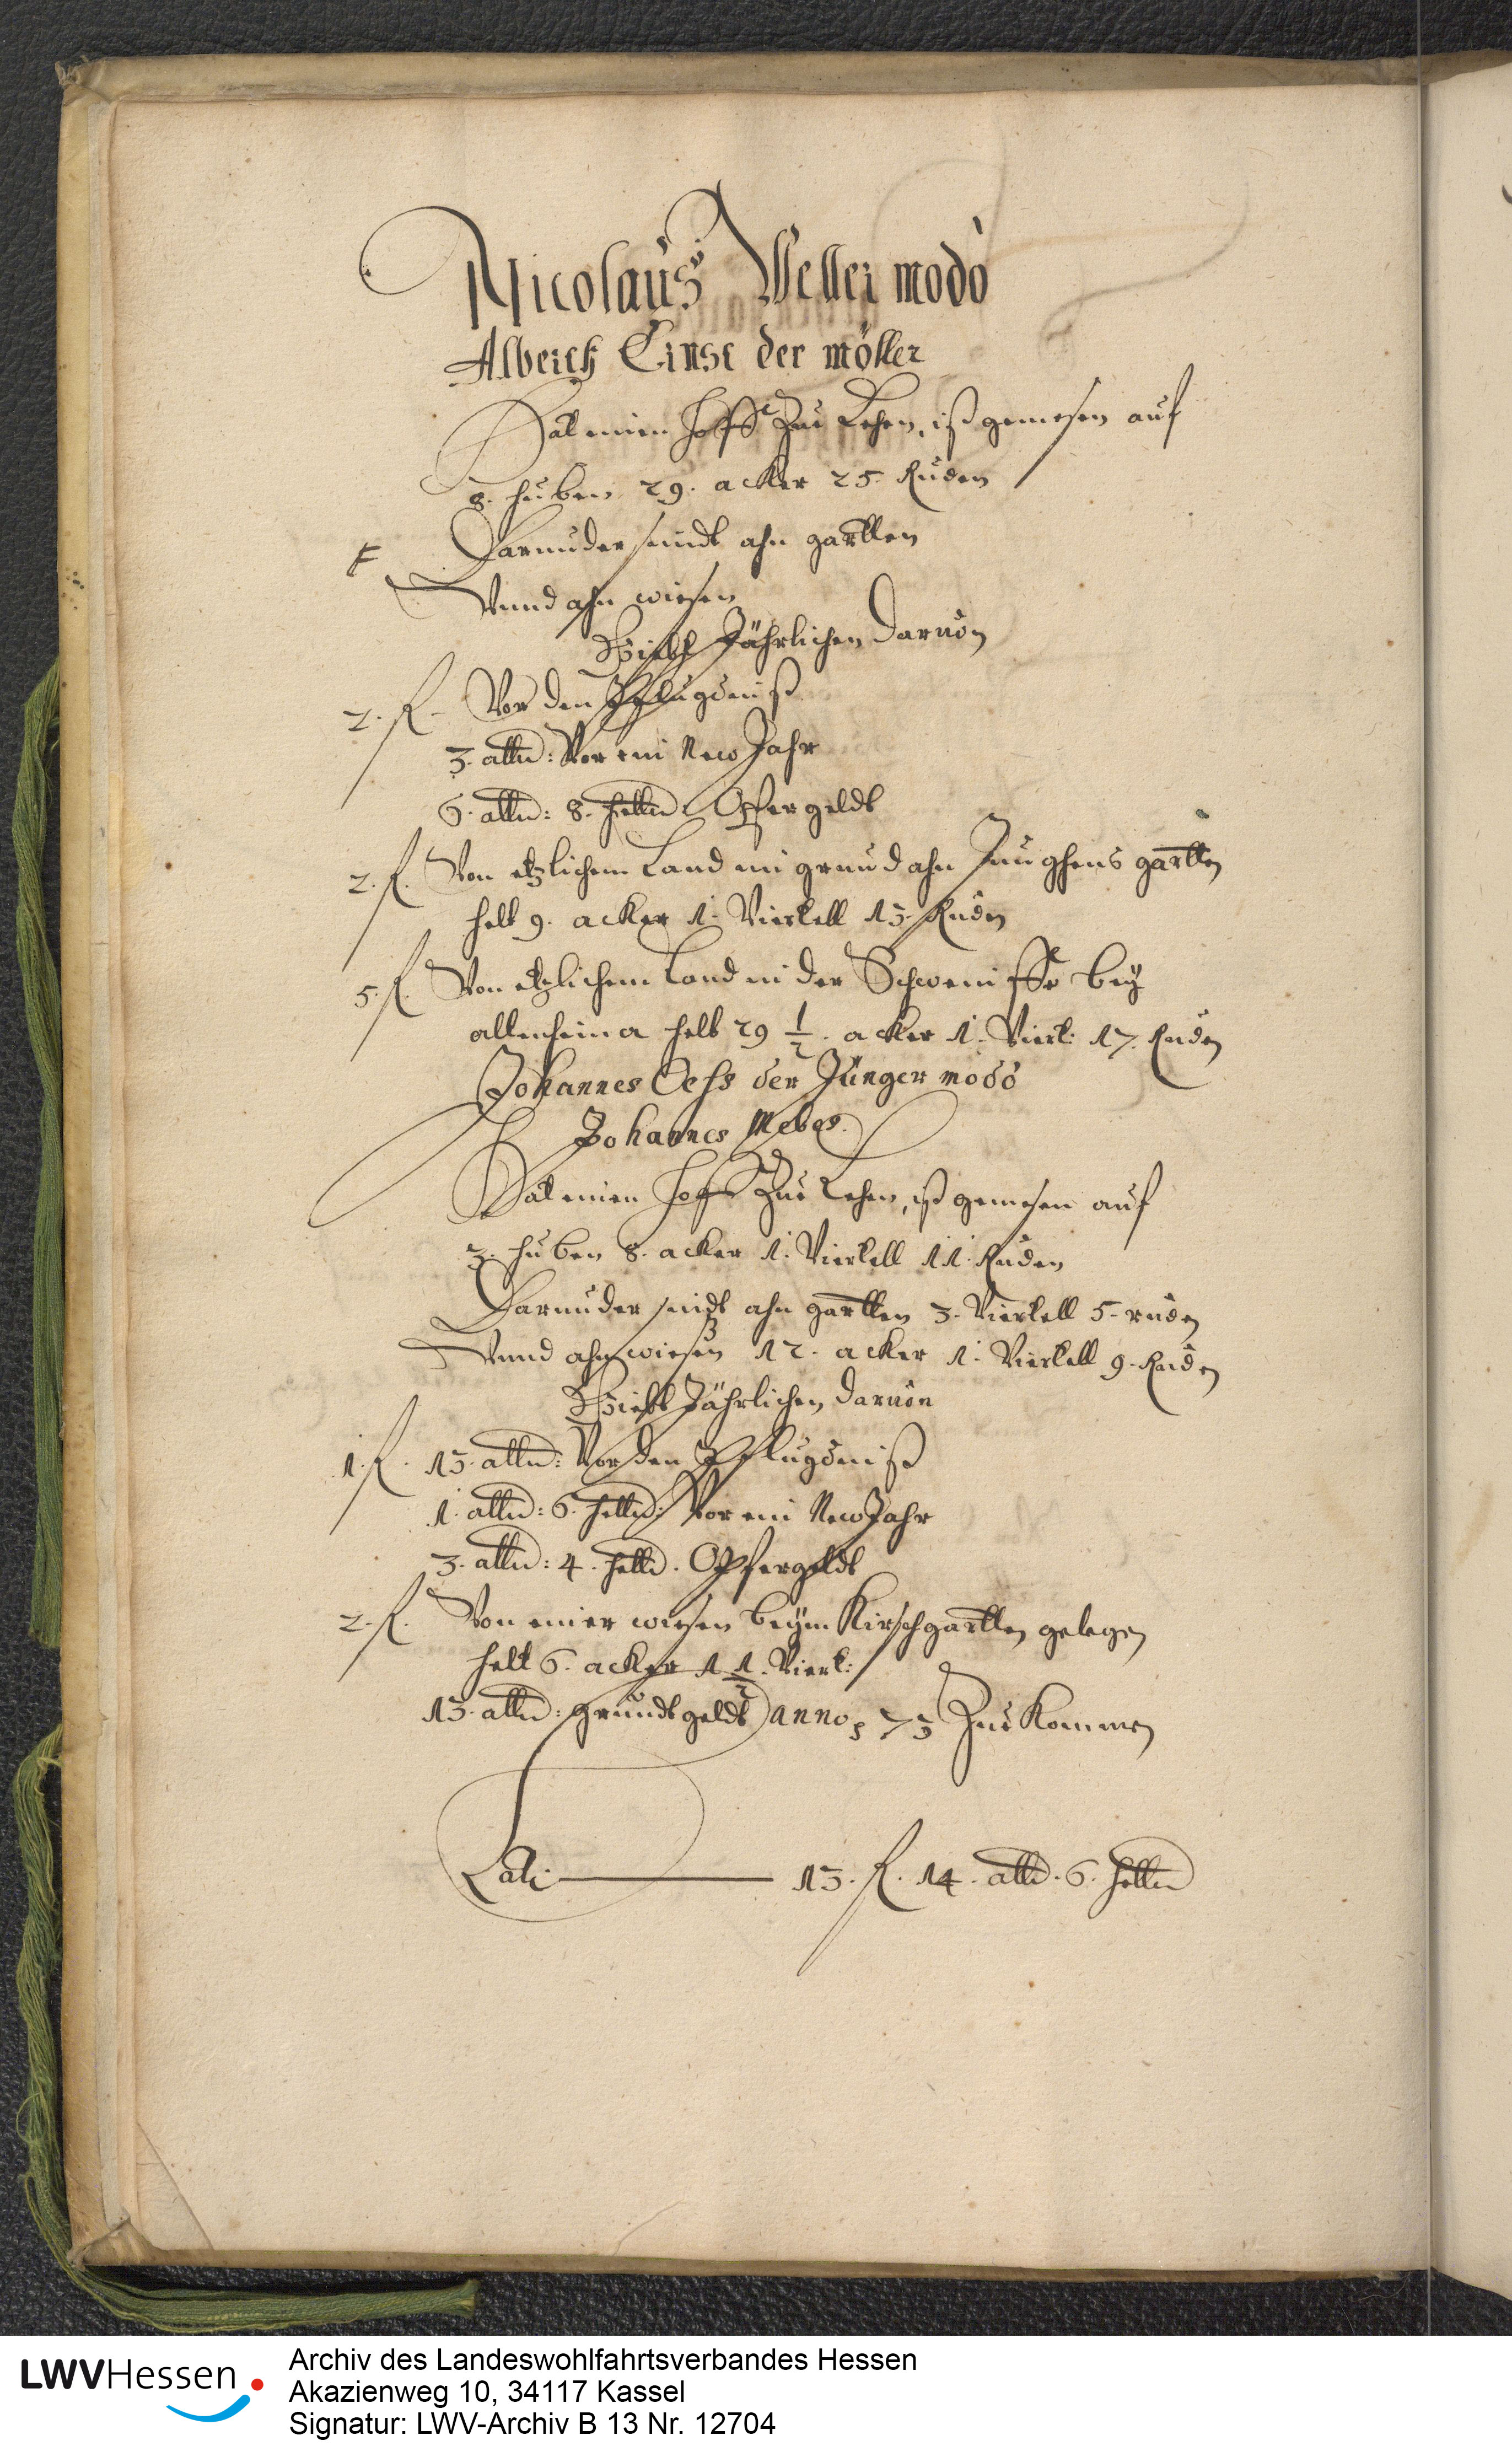 Nicolaus Weller modo
Alberth Einse der möller
Hat einen hoff Zue Lehen, ist gemesen auf
8. huben 29. acker 25. Ruden
Darunder sindt ahn gartten
Vnnd ahn wiesen
Giebt Jährlichen daruon
2. fl. Vor den Pflugdinst
3. albus: Vor ein New Jahr
6. albus: 8. heller. Opfergeldt
2. fl. Von etzlichem Land im grund ahn gartten
helt 9. acker 1. Viertell 15. Ruden
5. fl. Von etzlichem Land in der bey
allenheina helt 29 1/2. acker 1. Viert: 17. Ruden
Johannes Ochs der Jünger modo
Johannes Mebes.
Hat einen hoff Zue Lehen, ist gemesen auf
3. huben 8. acker 1. Viertell 11. Ruden
Darunder sindt ahn gartten 3. Viertell 5. ruden
Vnnd ahn wiesen 12. acker 1. Viertell 9. Ruden
Giebt Jährlichen daruon
1. fl. 15. albus: Vor den Pflugdinst
1. albus: 6. heller: Vor ein New Jahr
3. albus: 4. heller. Opfergeldt
2. fl. Von einer wiesen beym Kirschgartten gelegen
helt 6. acker 1 1/2. Viert:
13. albus: grundtgeldt anno 73 Zue Kommen
Lati 13. fl. 14. albus. 6. heller
LWVHessen
Archiv des Landeswohlfahrtsverbandes Hessen
Akazienweg 10, 34117 Kassel
Signatur: LWV-Archiv B 13 Nr. 12704